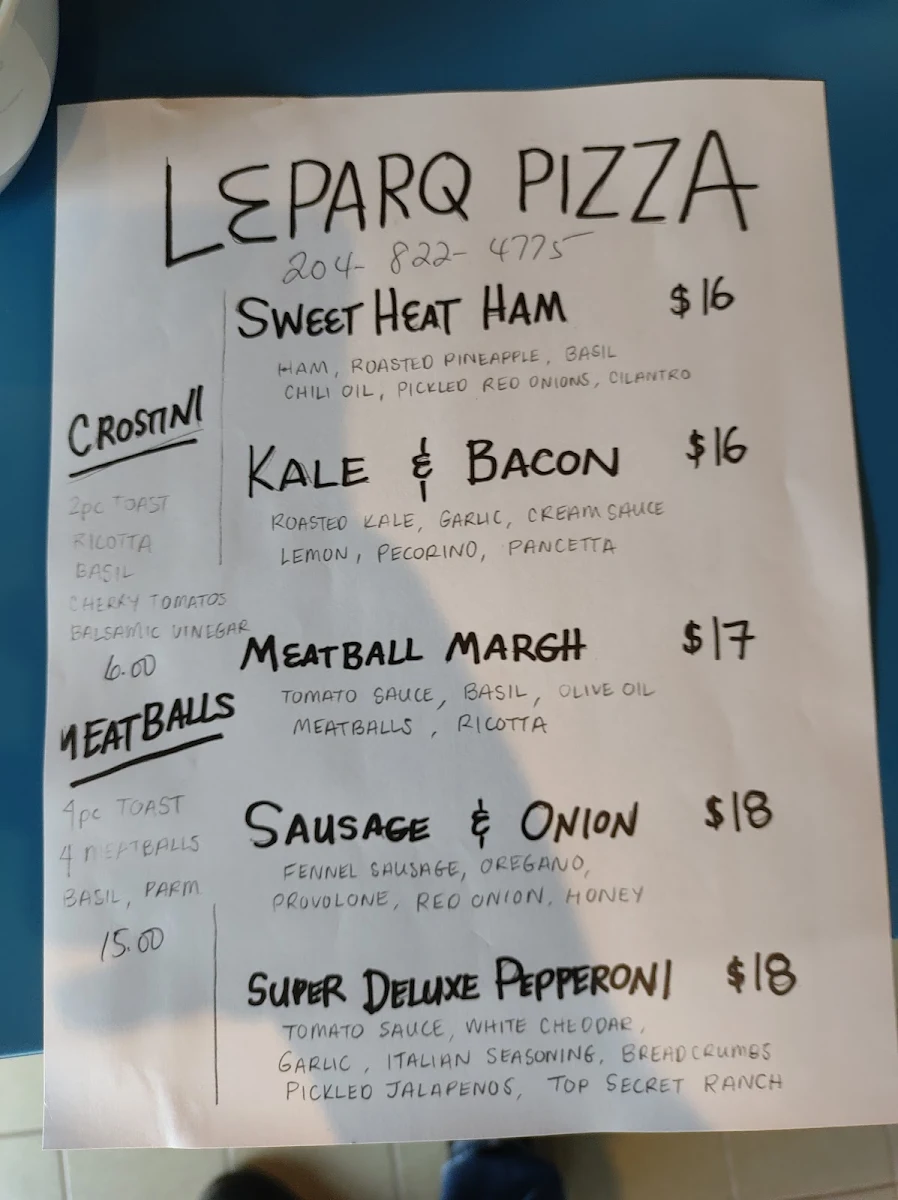 LEPARQ PIZZA
204-822-4775
SWEET HEAT HAM $16
HAM, ROASTED PINEAPPLE, BASIL
CHILI OIL, PICKLED RED ONIONS, CILANTRO
KALE & BACON $16
ROASTED KALE, GARLIC, CREAM SAUCE
LEMON, PECORINO, PANCETTA
MEATBALL MARGH $17
TOMATO SAUCE, BASIL, OLIVE OIL
MEATBALLS, RICOTTA
SAUSAGE & ONION $18
FENNEL SAUSAGE, OREGANO,
PROVOLONE, RED ONION, HONEY
SUPER DELUXE PEPPERONI $18
TOMATO SAUCE, WHITE CHEDDAR,
GARLIC, ITALIAN SEASONING, BREADCRUMBS
PICKLED JALAPENOS, TOP SECRET RANCH
CROSTINI
2pc TOAST
RICOTTA
BASIL
CHERRY TOMATOS
BALSAMIC VINEGAR
6.00
MEATBALLS
4pc TOAST
4 MEATBALLS
BASIL, PARM
15.00